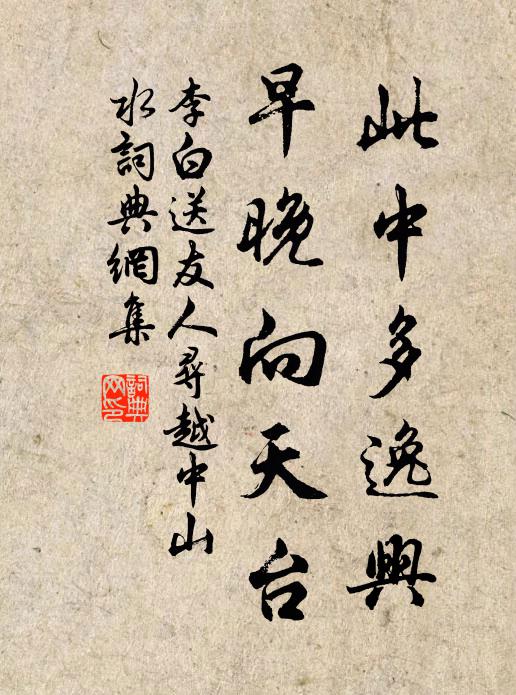 此中多逸興
早晚向天台
李白送友人尋越中山
水詞典網集
詞典
网印